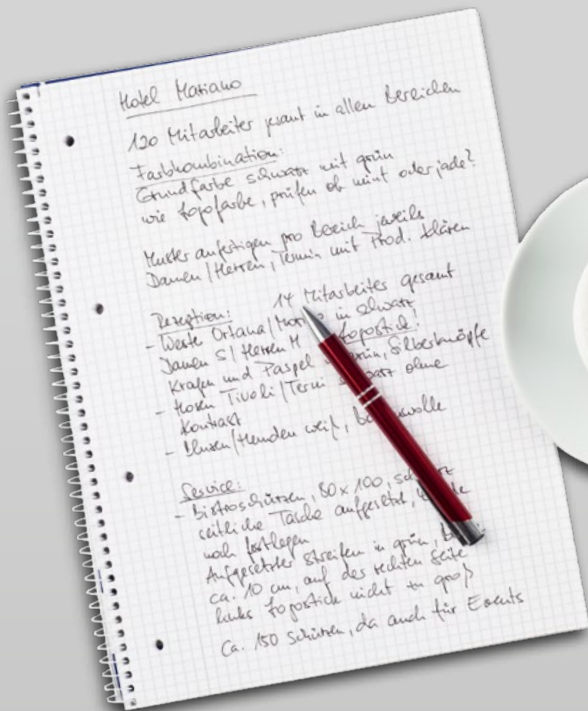 Hotel Mariano
120 Mitarbeiter gesamt in allen Bereichen
Farbkombination:
Grundfarbe schwarz mit grün
wie Logofarbe, prüfen ob mint oder jade?
Muster anfertigen pro Bereich jeweils
Damen/Herren, Termin mit Prod. klären
Rezeption: 14 Mitarbeiter gesamt
- Weste Ortana/ in schwarz
Damen S/Herren M Logostick!
Kragen und Paspel Silberknöpfe
- Hosen Tivoli/Terni ohne
Kontrast
- Blusen/Hemden weiß,
Service:
- Bistroschürzen, 80 x 100,
seitliche Tasche aufgesetzt,
noch festlegen
Aufgesetzter Streifen in grün,
ca. 10 cm, auf der rechten Seite
links Logostick nicht zu groß
Ca. 150 Schürzen, da auch für Events